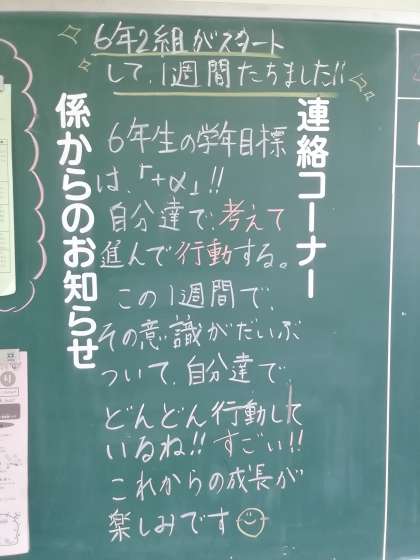 6年2組がスタート
して、1週間たちました!!
連絡コーナー
係からのお知らせ
6年生の学年目標
は、「+α」!!
自分達で、考えて
進んで行動する。
この1週間で、
その意識がだいぶ
ついて、自分達で
どんどん行動して
いるね!! すごい!!
これからの成長が
楽しみです